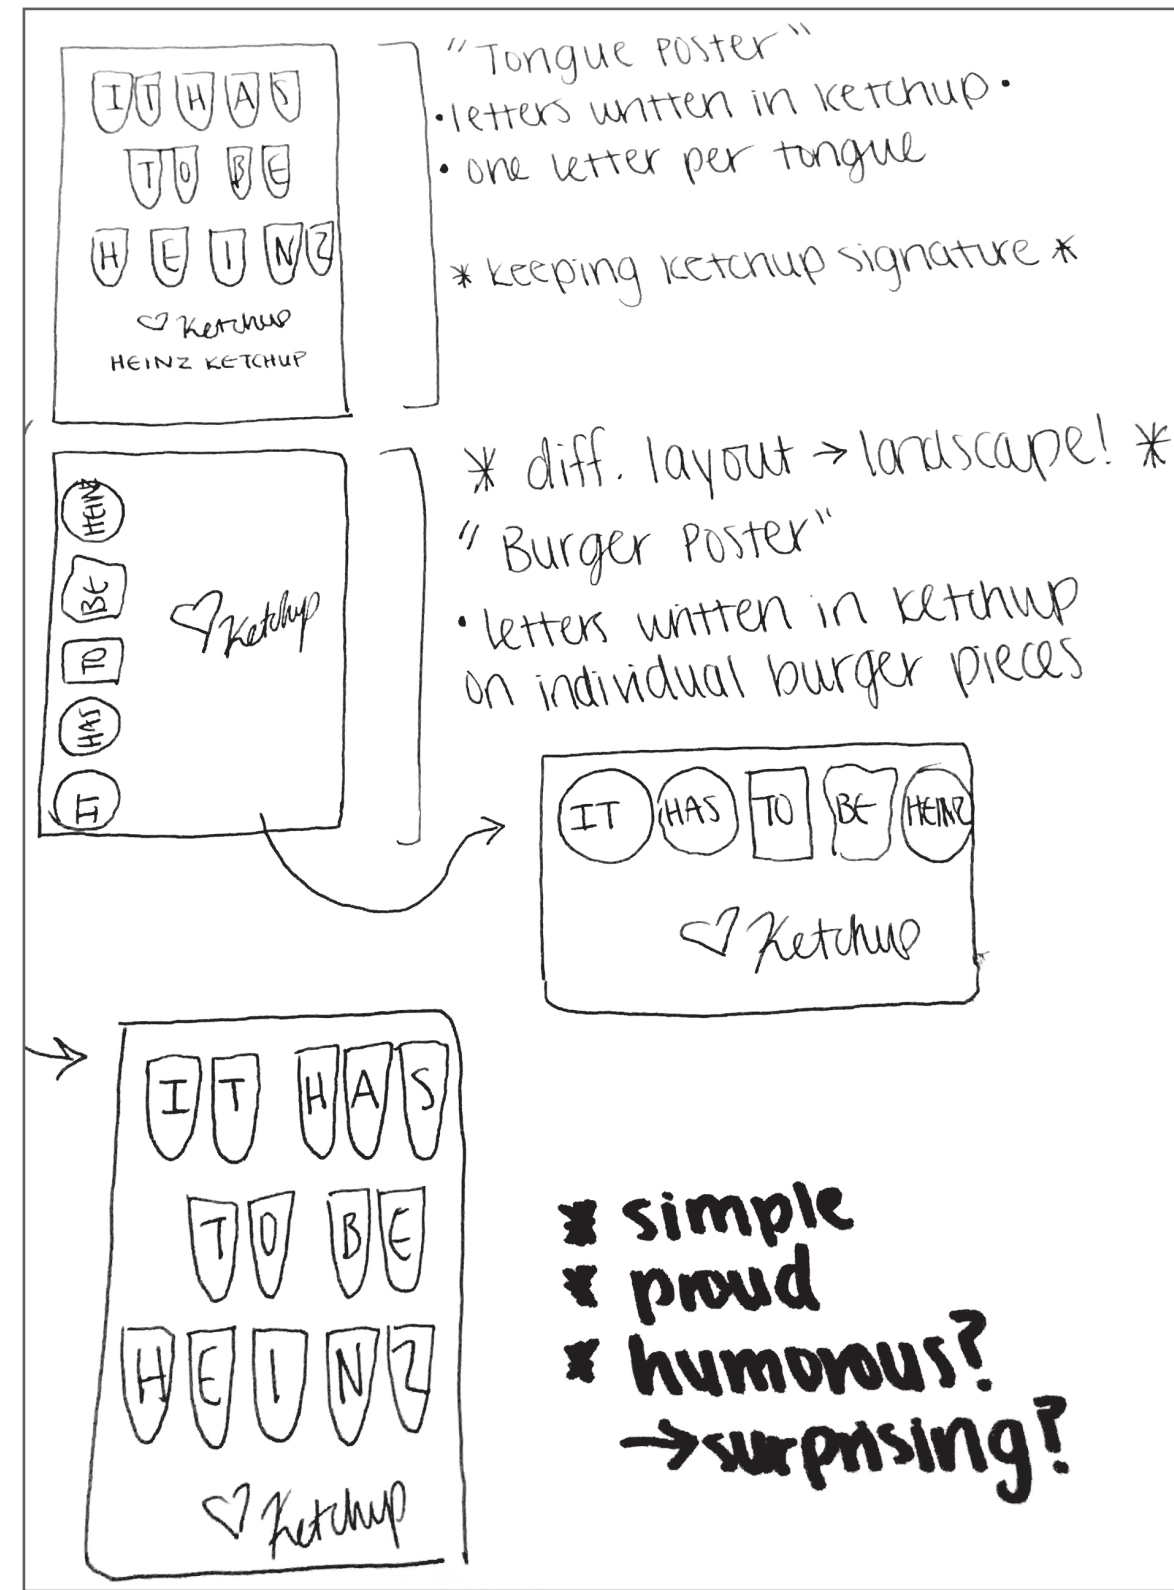 IT HAS
TO BE
HEINZ
♡ Ketchup
HEINZ KETCHUP
"Tongue Poster"
• letters written in ketchup •
• one letter per tongue
* keeping ketchup signature *
HEINZ
BE
TO
HAS
IT
♡ Ketchup
* diff. layout → landscape! *
"Burger Poster"
• letters written in ketchup
on individual burger pieces
IT HAS TO BE HEINZ
♡ Ketchup
IT HAS
TO BE
HEINZ
♡ Ketchup
* simple
* proud
* humorous?
→ surprising?